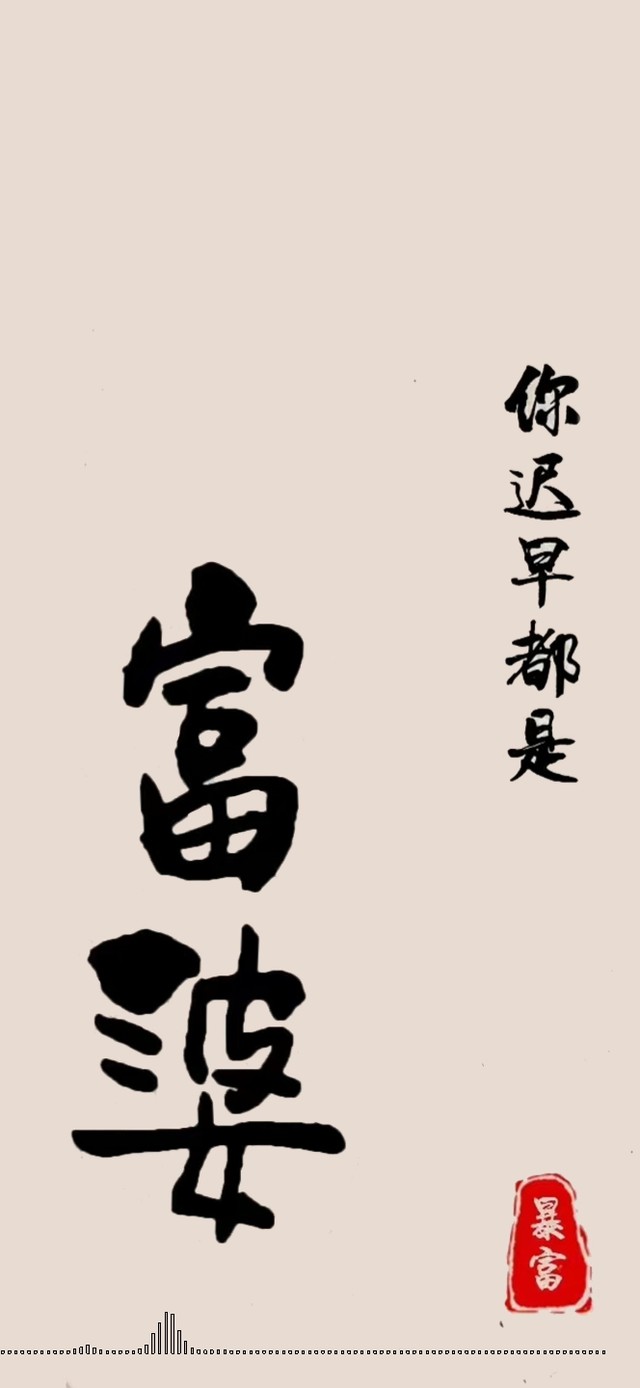 你迟早都是
富婆
暴富